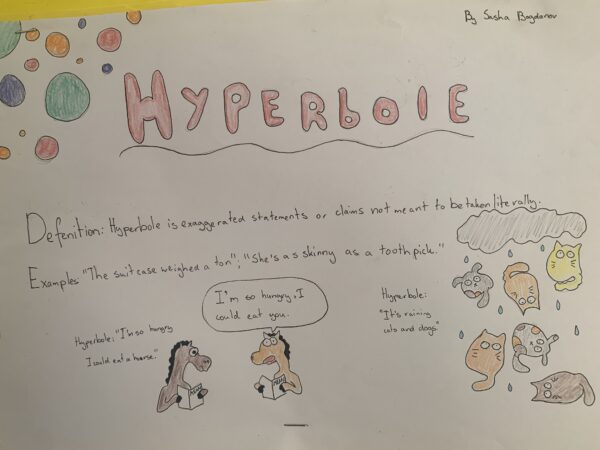 By Sasha Bogdanov
HYPERbOlE
Defenition: Hyperbole is exaggerated statements or claims not meant to be taken literally.
Examples: "The suitcase weighed a ton"; "She's as skinny as a toothpick."
Hyperbole: "I'm so hungry
I could eat a horse."
I'm so hungry, I
could eat you.
MENU
MENU
Hyperbole:
"It's raining
cats and dogs."